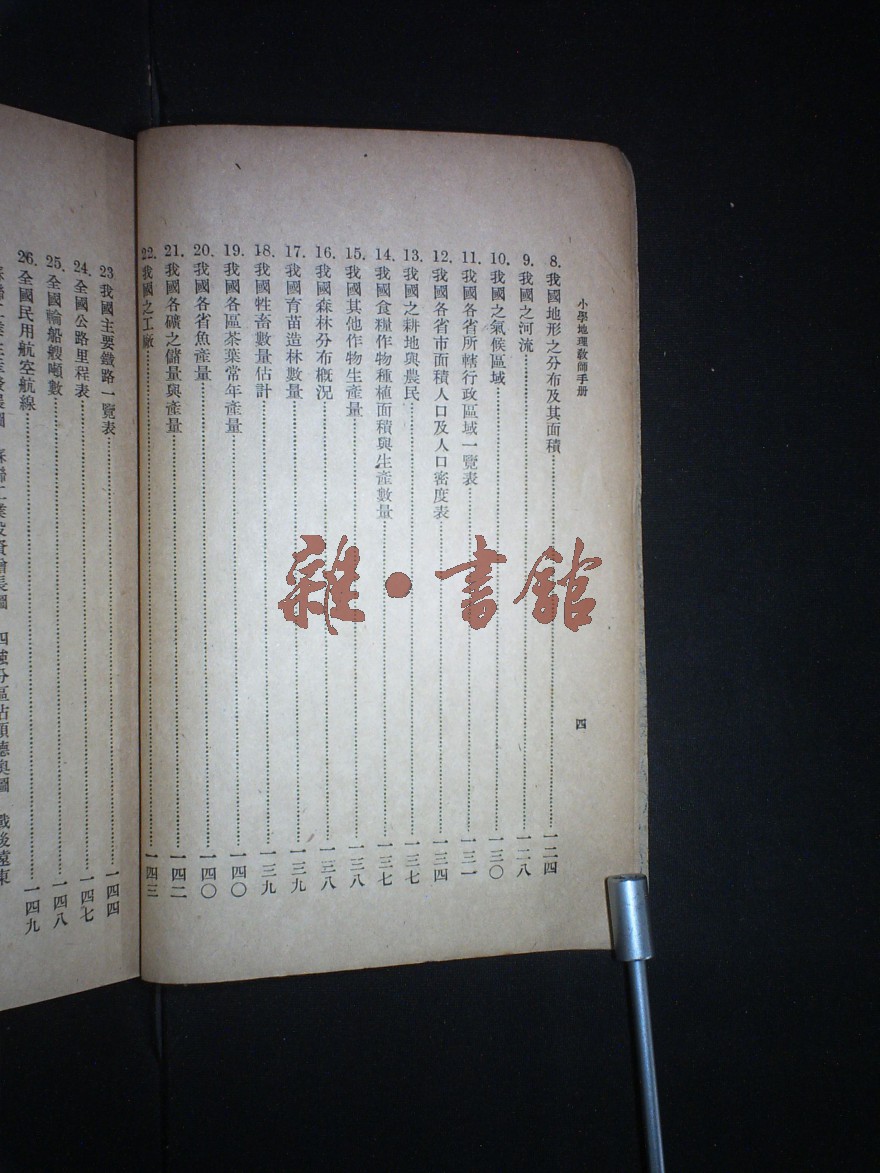 小學地理教師手册
四
8. 我國地形之分布及其面積 一二四
9. 我國之河流 一二八
10. 我國之氣候區域 一三〇
11. 我國各省所轄行政區域一覽表 一三一
12. 我國各省市面積人口及人口密度表 一三四
13. 我國之耕地與農民 一三七
14. 我國食糧作物種植面積與生產數量 一三七
15. 我國其他作物生產量 一三八
16. 我國森林分布概況 一三八
17. 我國育苗造林數量 一三九
18. 我國牲畜數量估計 一三九
19. 我國各區茶葉常年產量 一四〇
20. 我國各省魚產量 一四〇
21. 我國各礦之儲量與產量 一四二
22. 我國之工廠 一四三
23. 我國主要鐵路一覽表 一四四
24. 全國公路里程表 一四七
25. 全國輪船艘噸數 一四八
26. 全國民用航空航線 一四九
雜·書館